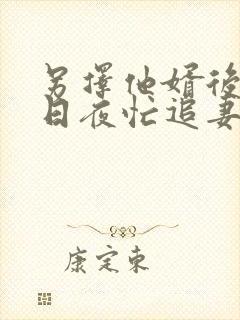 另择他婿後
日夜忙追妻
康定东